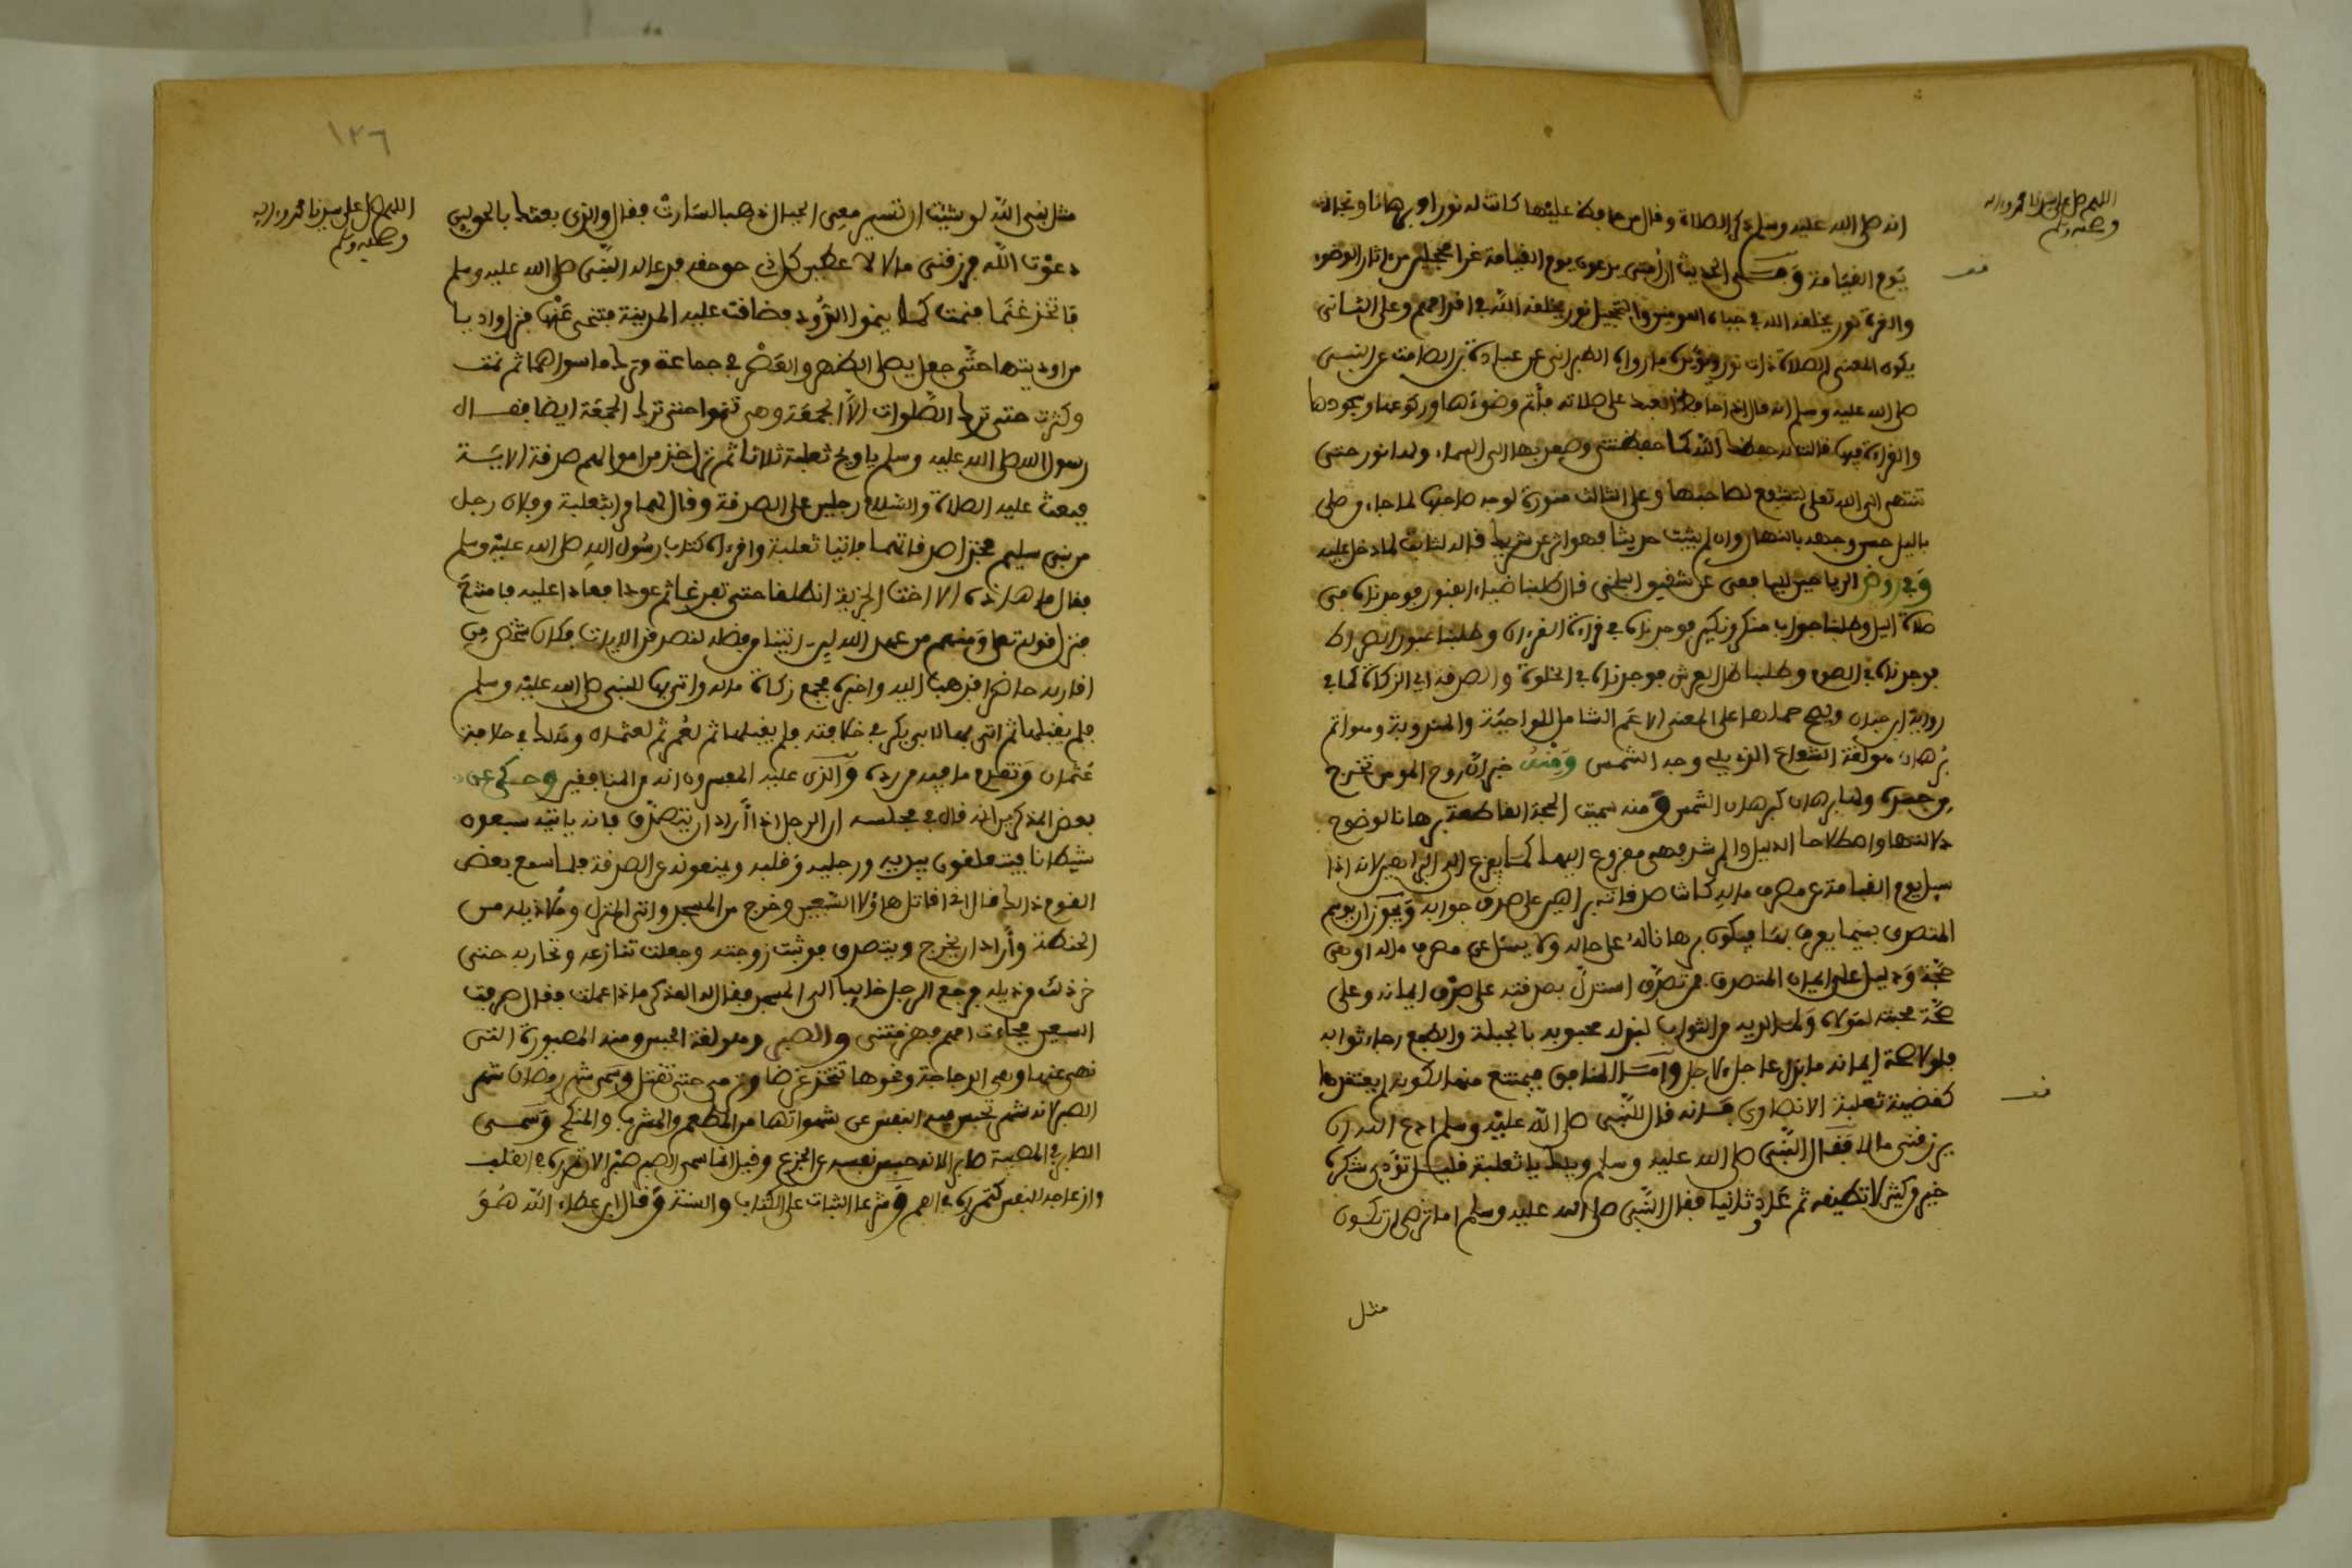 اللهم صل على سيدنا محمد وءاله
وصحبه وسلم
انه صلى الله عليه وسلم ذكر الصلاة وقال من حافظ عليها كانت له نورا وبرهانا ونجاة
يوم القيامة وفي الحديث ان أمتي يدعون يوم القيامة غرا محجلين من ءاثار الوضوء
والغرة نور يخلقه الله في جباه المومنين والتحجيل نور يخلقه الله في اقدامهم وعلى الثاني
يكون المعنى الصلاة ذات نور ويؤيده ما رواه الطبراني عن عبادة بن الصامت عن النبي
صلى الله عليه وسلم انه قال اذا حافظ العبد على صلاته فأتم وضوءها وركوعها وسجودها
والقراءة فيها قالت له حفظك الله كما حفظتني وصعد بها الى السماء ولها نور حتى
تنتهي الى الله تعلى لتشفع لصاحبها وعلى الثالث منورة لوجه صاحبها لما جاء من صلى
باليل حسن وجهه بالنهار وان لم يثبت حديثا فهو اثر عن شريك قاله لثابت لما دخل عليه
وفي روض الرياحين لليافعي عن شقيق البلخي قال طلبنا ضياء القبور فوجدناه في
صلاة اليل وطلبنا جواب منكر ونكير فوجدناه في قراءة القرءان وطلبنا عبور الصراط
فوجدناه في الصوم وطلبنا ظل العرش فوجدناه في الخلوة والصدقة اي الزكاة كما في
رواية ابن حبان ويصح حملها على المعنى الاعم الشامل للواجبة والمندوبة وسواتم
برهان هو لغة الشعاع الذي يلي وجه الشمس ومنه خبر ان روح المومن تخرج
من جسده ولها برهان كبرهان الشمس ومنه سميت الحجة القاطعة برهانا لوضوح
دلالتها واصطلاحا الدليل والمرشد فهي مفزوع اليها كما يفزع الى البراهين لانه اذا
سيل يوم القيامة عن مصرف ماله كانت صدقاته براهين على صدق جوابه ويجوز ان يوسم
المتصدق بسيما يعرف بها فيكون برهانا له على حاله ولا يسئل عن مصرف ماله او هي
حجة ودليل على ايمان المتصدق فمن تصدق استدل بصدقته على صدق ايمانه وعلى
صحة محبته لمولاه ولما لديه من الثواب لبذله محبوبه بالجبلة والطبع رجاء ثوابه
فلولا صحة ايمانه ما بذل عاجلا لاجل واما المنافق فيمتنع منها لكونه لم يعتقدها
كقضية ثعلبة الانصاري فانه قال للنبي صلى الله عليه وسلم ادع الله ان
يرزقني مالا فقال النبي صلى الله عليه وسلم ويلك يا ثعلبة قليل تؤدي شكره
خير من كثير لا تطيقه ثم عاد ثانيا فقال النبي صلى الله عليه وسلم اما ترضى ان تكون
مثل
١٣٦
اللهم صل على سيدنا محمد وءاله
وصحبه وسلم
مثل نبي الله لو شئت ان تسير معي الجبال ذهبا لسارت فقال والذي بعثك بالحق لين
دعوت الله فرزقني مالا لاعطين كل ذي حق حقه فدعا له النبي صلى الله عليه وسلم
فاتخذ غنما فنمت كما ينموا الدود فضاقت عليه المدينة فتنحى عنها فنزل واديا
من اوديتها حتى جعل يصلي الظهر والعصر في جماعة وترك ما سواهما ثم نمت
وكثرت حتى ترك الصلوات الا الجمعة وهي تنموا حتى ترك الجمعة ايضا فقال
رسول الله صلى الله عليه وسلم يا ويح ثعلبة ثلاثا ثم نزل خذ من اموالهم صدقة الاية
فبعث عليه الصلاة والسلام رجلين على الصدقة وقال لهما مرا بثعلبة وبفلان رجل
من بني سليم فخذا صدقاتهما فاتيا ثعلبة واقرءاه كتاب رسول الله صلى الله عليه وسلم
فقال ما هاذه الا اخت الجزية انطلقا حتى تفرغا ثم عودا فعادا اليه فامتنع
فنزل قوله تعلى ومنهم من عهد الله لين ءاتينا من فضله لنصدقن الايات فكان شخص من
اقاربه حاضرا فذهب اليه واخبره فجمع زكاة ماله واتى بها للنبي صلى الله عليه وسلم
فلم يقبلها ثم اتى بها لابي بكر في خلافته فلم يقبلها ثم لعمر ثم لعثمان وهلك في خلافة
عثمان وتقدم ما فيه من رده والذي عليه المفسرون انه من المنافقين وحكي عن
بعض المذكرين انه قال في مجلسه ان الرجل اذا أراد ان يتصدق فانه ياتيه سبعون
شيطانا فيتعلقون بيديه ورجليه وقلبه ويمنعونه عن الصدقة فلما سمع بعض
القوم ذالك قال اني اقاتل هاؤلاء السبعين وخرج من المسجد واتى المنزل وملأ ذيله من
الحنطة وأراد ان يخرج ويتصدق فوثبت زوجته وجعلت تنازعه وتحاربه حتى
اخرجت من ذيله فرجع الرجل خايبا الى المسجد فقال له المذكر ماذا عملت فقال هزمت
السبعين فجاءت امهم فهزمتني والصبر وهو لغة الحبس ومنه المصبورة التي
نهى عنها وهي الدجاجة ونحوها تتخذ غرضا وترمى حتى تقتل وسمي شهر رمضان شهر
الصبر لانه شهر تحبس فيه النفس عن شهواتها من المطعم والمشرب والمنكح وسمي
الصابر في المصيبة صابرا لانه حبس نفسه عن الجزع وقيل انما سمي الصبر صبرا لان تمرره في القلب
وازعاجه النفس كتمرره في الفم وشرعا الثبات على الكتاب والسنة وقال ابن عطاء الله هو